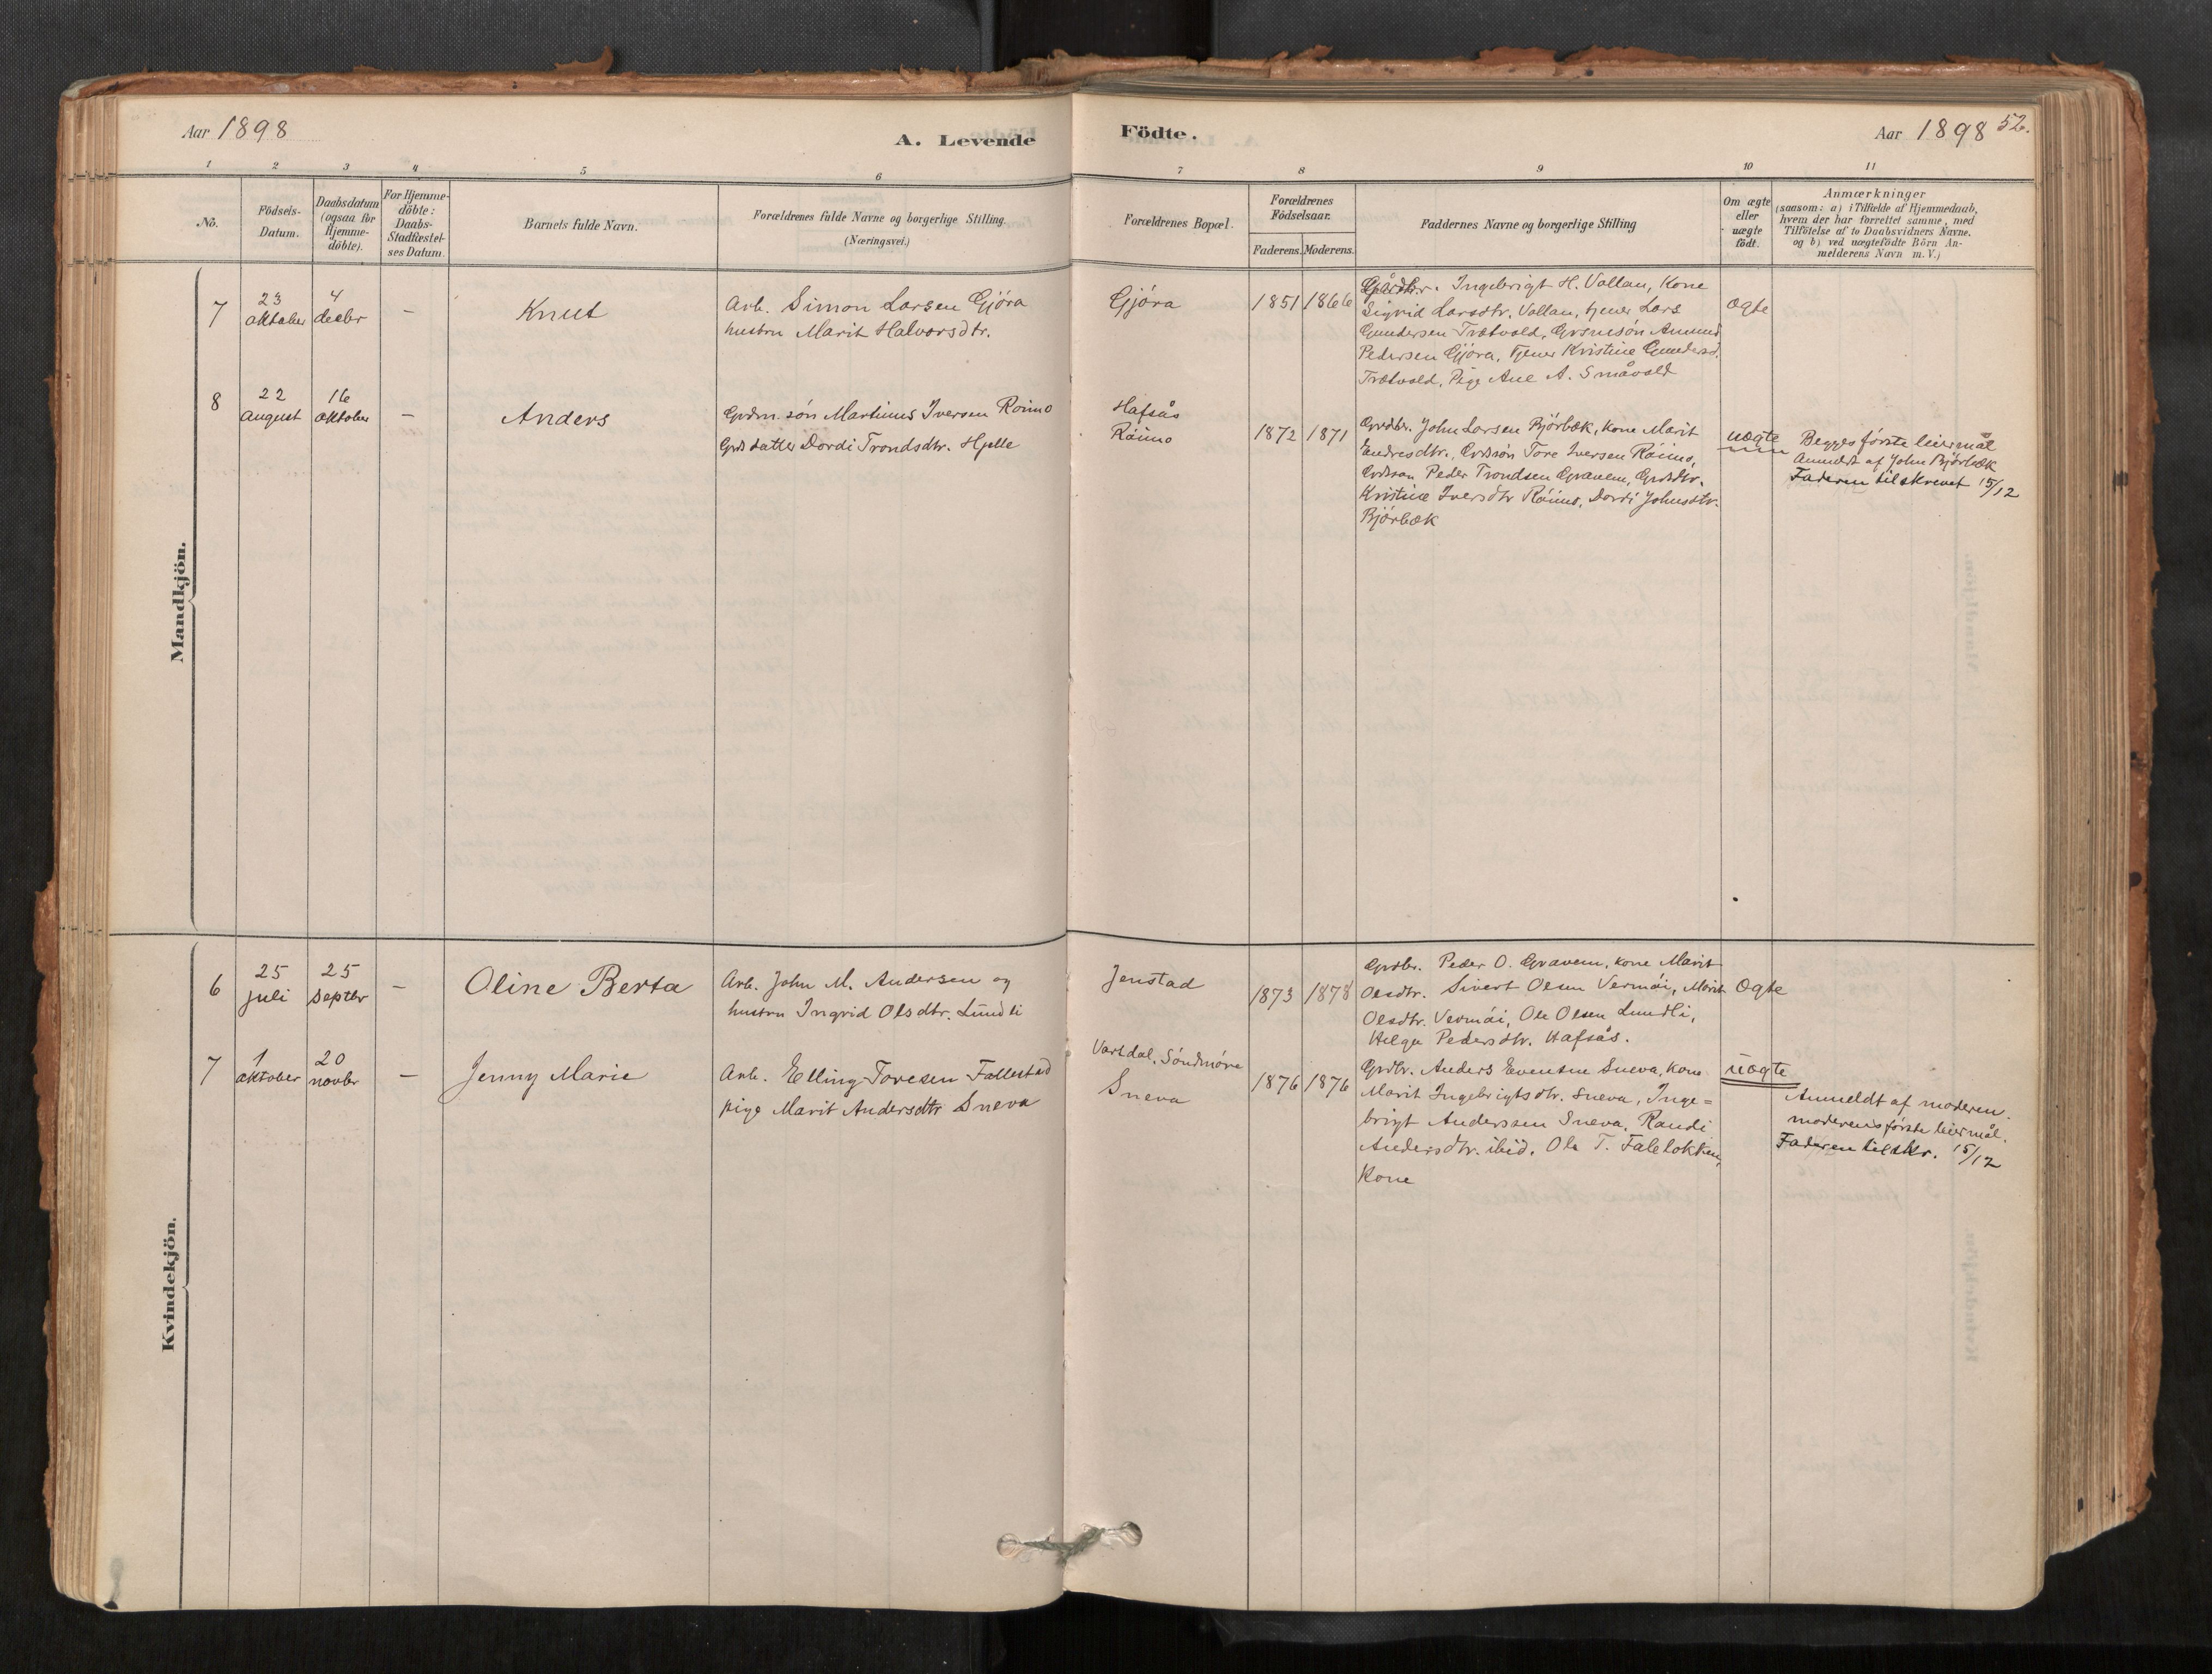 Aar 1898
A. Levende
Födte.
Aar 1898
52.
1 2 3 4 5 6 7 8 9 10 11
No.
Födsels-
Datum.
Daabsdatum
(ogsaa for
Hjemme-
döbte).
For Hjemme-
döbte:
Daabs-
Stadfæstel-
ses Datum.
Barnets fulde Navn.
Forældrenes fulde Navne og borgerlige Stilling.
(Næringsvei.)
Forældrenes Bopæl.
Forældrenes
Födselsaar.
Faderens. Moderens.
Faddernes Navne og borgerlige Stilling
Om ægte
eller
uægte
födt.
Anmærkninger
(saasom: a) i Tilfælde af Hjemmedaab,
hvem der har forrettet samme, med
Tilföielse af to Daabsvidners Navne,
og b) ved uægtefödte Börn An-
melderens Navn m. V.)
Mandkjön.
7
23
oktober
4
decbr
-
Knut
Arb. Simon Larsen Gjöra
hustru Marit Halvorsdtr.
Gjöra
1851 1866
Gårdbr. Ingebrigt H. Vollan, Kone
Sigrid Larsdtr. Vollan, tjener Lars
Gundersen Trætvold, Grdmsön Amund
Pedersen Gjöra, Tjener Kristine Gundersd.
Trætvold, Pige Ane A. Småvold
ægte
8
22
august
16
oktober
-
Anders
Grdm. sön Martinus Iversen Röimo
Grdsdatter Dordi Trondsdtr. Hjelle
Hafsås
Röimo
1872 1871
Grdbr. John Larsen Björbæk, kone Marit
Endresdtr., Grdsön Tore Iversen Röimo,
Grdsön Peder Trondsen Gravem, Grdsdtr.
Kristine Iversdtr Röimo, Dordi Johnsdtr.
Björbæk
uægte
Begges förste leiermål
Anmeldt af John Björbæk
Faderen tilskrevet 15/12
Kvindekjön.
6
25
juli
25
septbr
-
Oline Berta
Arb. John M. Andersen og
hustru Ingrid Olsdtr. Lundli
Jenstad
1873 1878
Grdbr. Peder O. Gravem, kone Marit
Olsdtr. Sivert Olsen Vermöi, Marit
Olsdtr. Vermöi, Ole Olsen Lundli,
Helga Pedersdtr. Hafsås.
ægte
7
1
oktober
20
novbr
-
Jenny Marie
Arb. Elling Toresen Fallestad
pige Marit Andersdtr Sneva
Vartdal, Söndmöre
Sneva
1876 1876
Grdbr. Anders Evensen Sneva, kone
Marit Ingebrigtsdtr. Sneva, Inge=
brigt Anderssen Sneva, Randi
Andersdtr. ibid. Ole T. Faleløkken,
Kone
uægte
Anmeldt af moderen.
moderens förste leiermål.
Faderen tilskr. 15/12